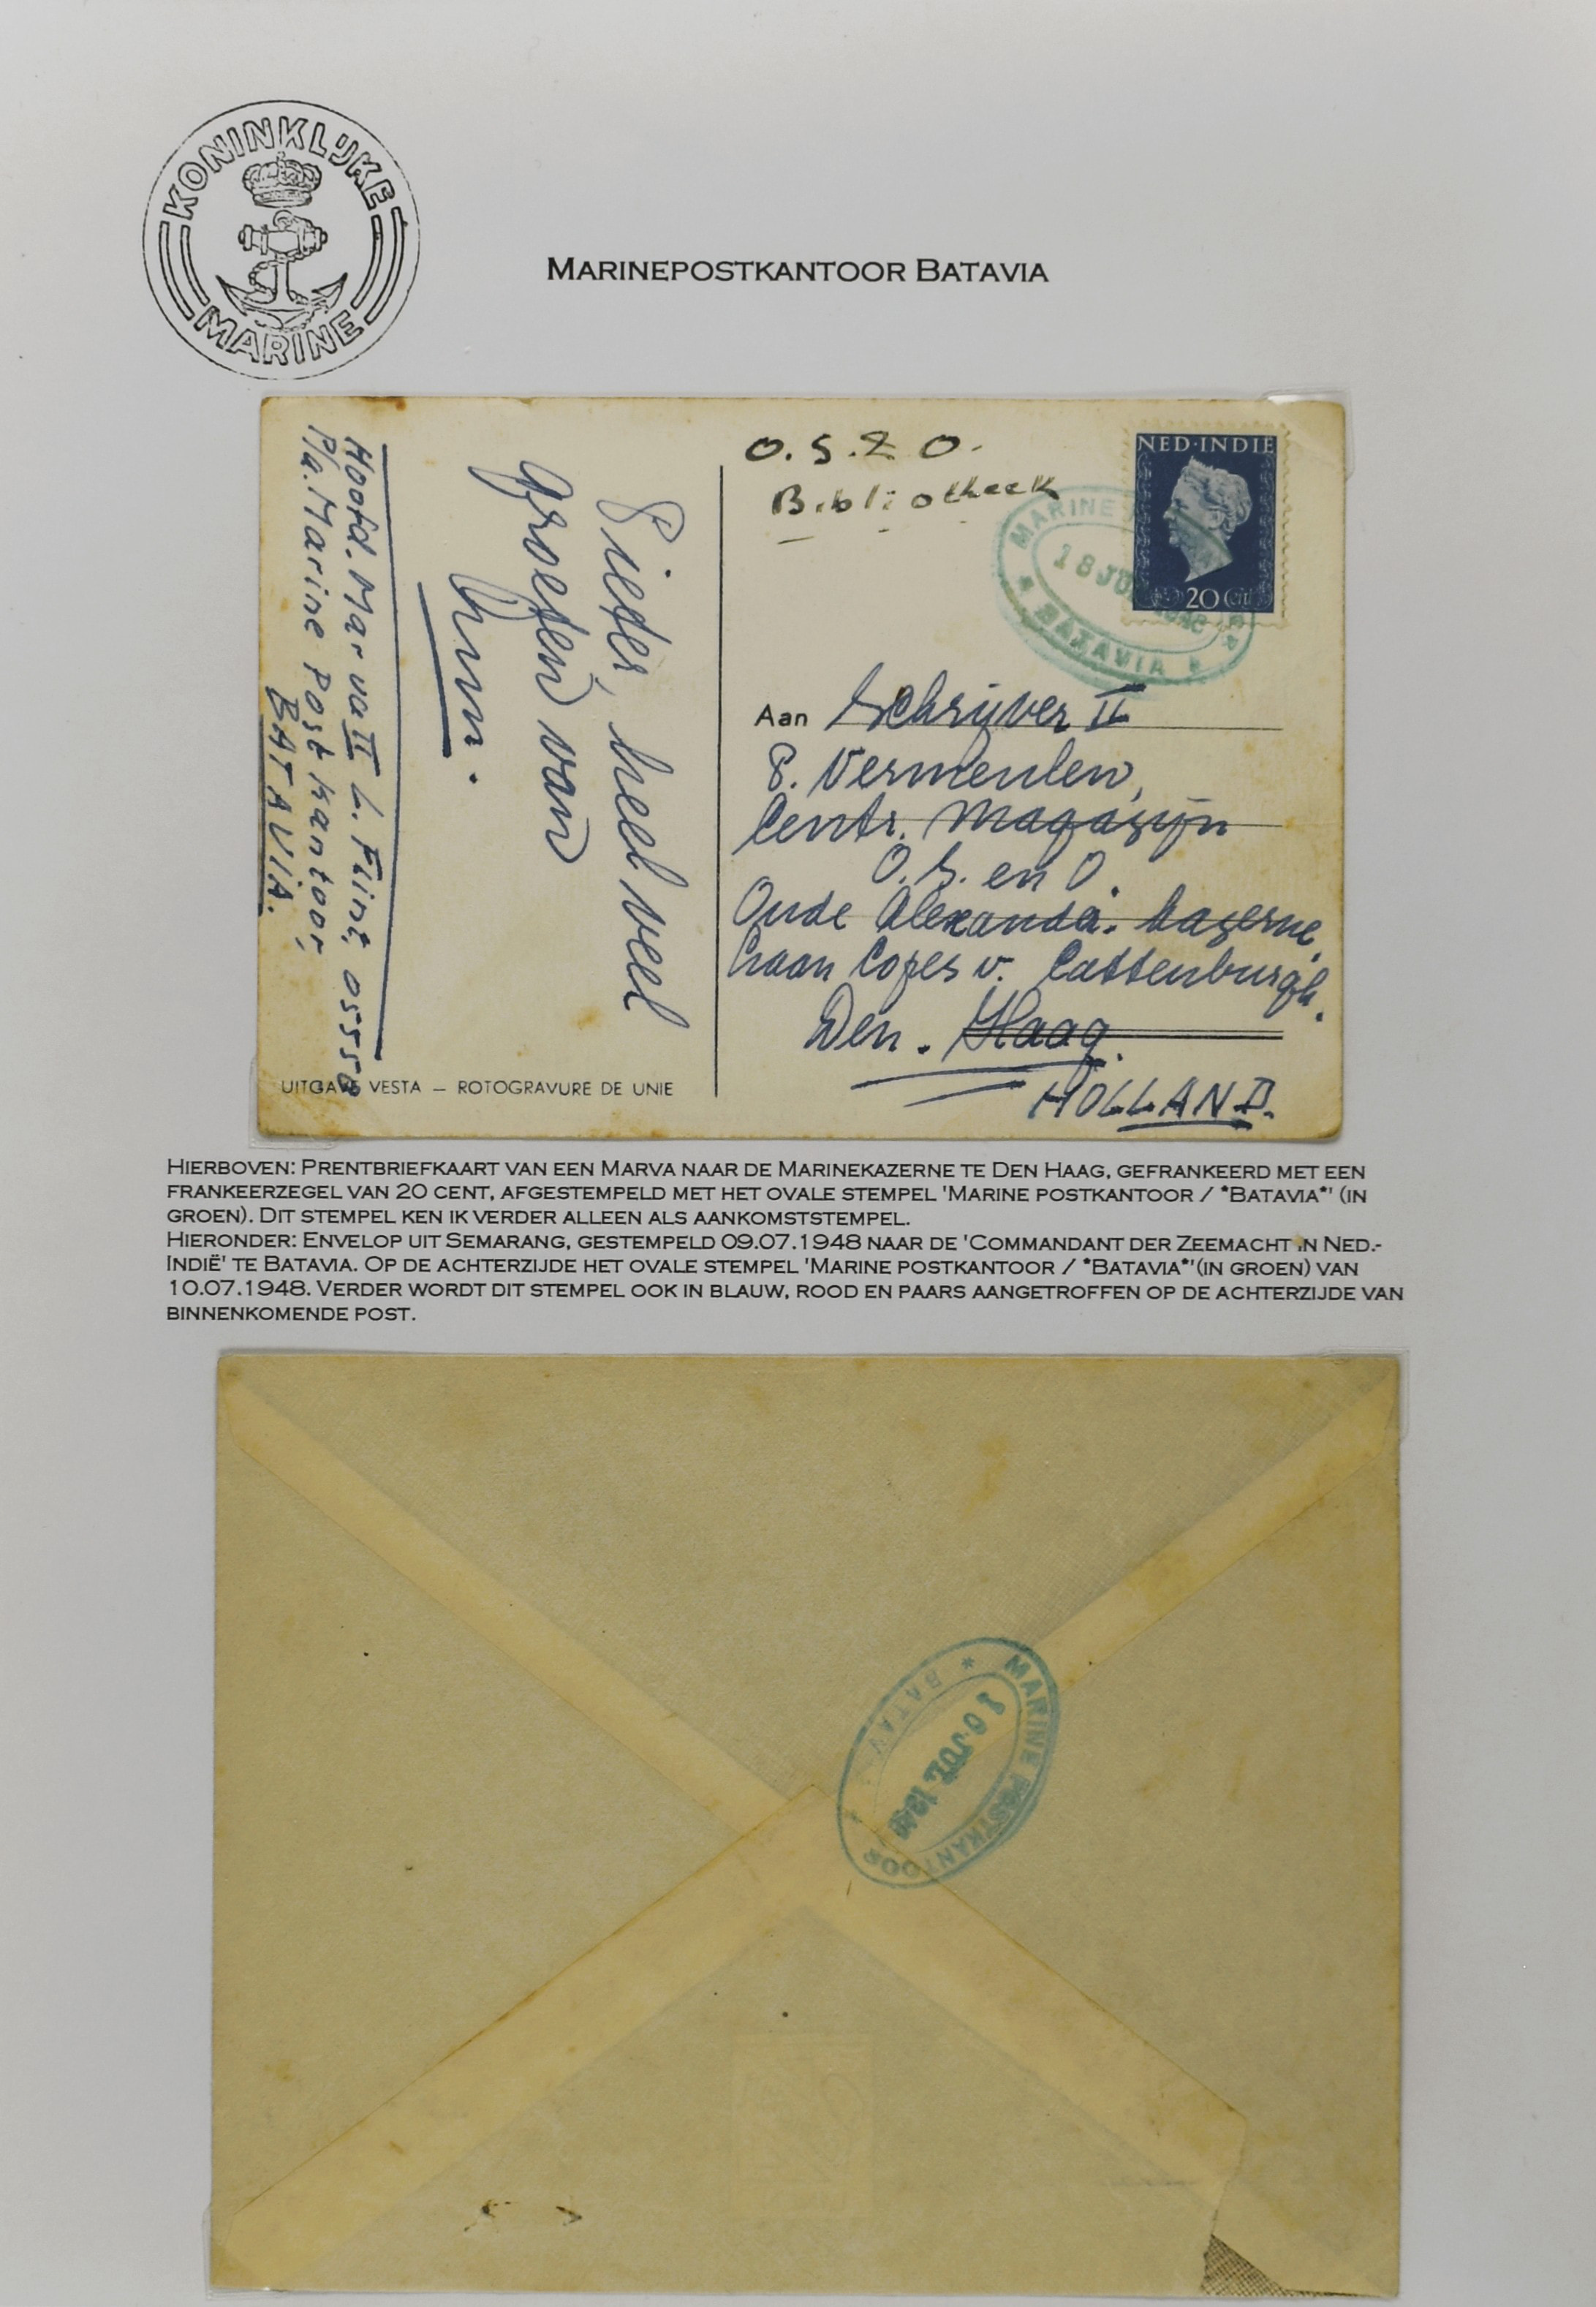 KONINKLIJKE
MARINE
MARINEPOSTKANTOOR BATAVIA
O.S.Z O.
Bibliotheek
NED·INDIE
20 Cnt
MARINE
18 JU
* BATAVIA *
Aan Schrijver II
Vermeulen,
Centr. Magazijn
O.S. en O.
Oude Alexander. Kazerne,
Laan Copes v. Cattenburgh.
Den. Haag.
HOLLAND.
heel veel
groeten van
Hoofd. Marva II L. Flint, 05558
P/a. Marine Postkantoor,
BATAVIA.
UITGAVE VESTA — ROTOGRAVURE DE UNIE
HIERBOVEN: PRENTBRIEFKAART VAN EEN MARVA NAAR DE MARINEKAZERNE TE DEN HAAG, GEFRANKEERD MET EEN
FRANKEERZEGEL VAN 20 CENT, AFGESTEMPELD MET HET OVALE STEMPEL 'MARINE POSTKANTOOR / *BATAVIA*' (IN
GROEN). DIT STEMPEL KEN IK VERDER ALLEEN ALS AANKOMSTSTEMPEL.
HIERONDER: ENVELOP UIT SEMARANG, GESTEMPELD 09.07.1948 NAAR DE 'COMMANDANT DER ZEEMACHT IN NED.-
INDIË' TE BATAVIA. OP DE ACHTERZIJDE HET OVALE STEMPEL 'MARINE POSTKANTOOR / *BATAVIA*'(IN GROEN) VAN
10.07.1948. VERDER WORDT DIT STEMPEL OOK IN BLAUW, ROOD EN PAARS AANGETROFFEN OP DE ACHTERZIJDE VAN
BINNENKOMENDE POST.
MARINE POSTKANTOOR
10 JUL 1948
* BATAV